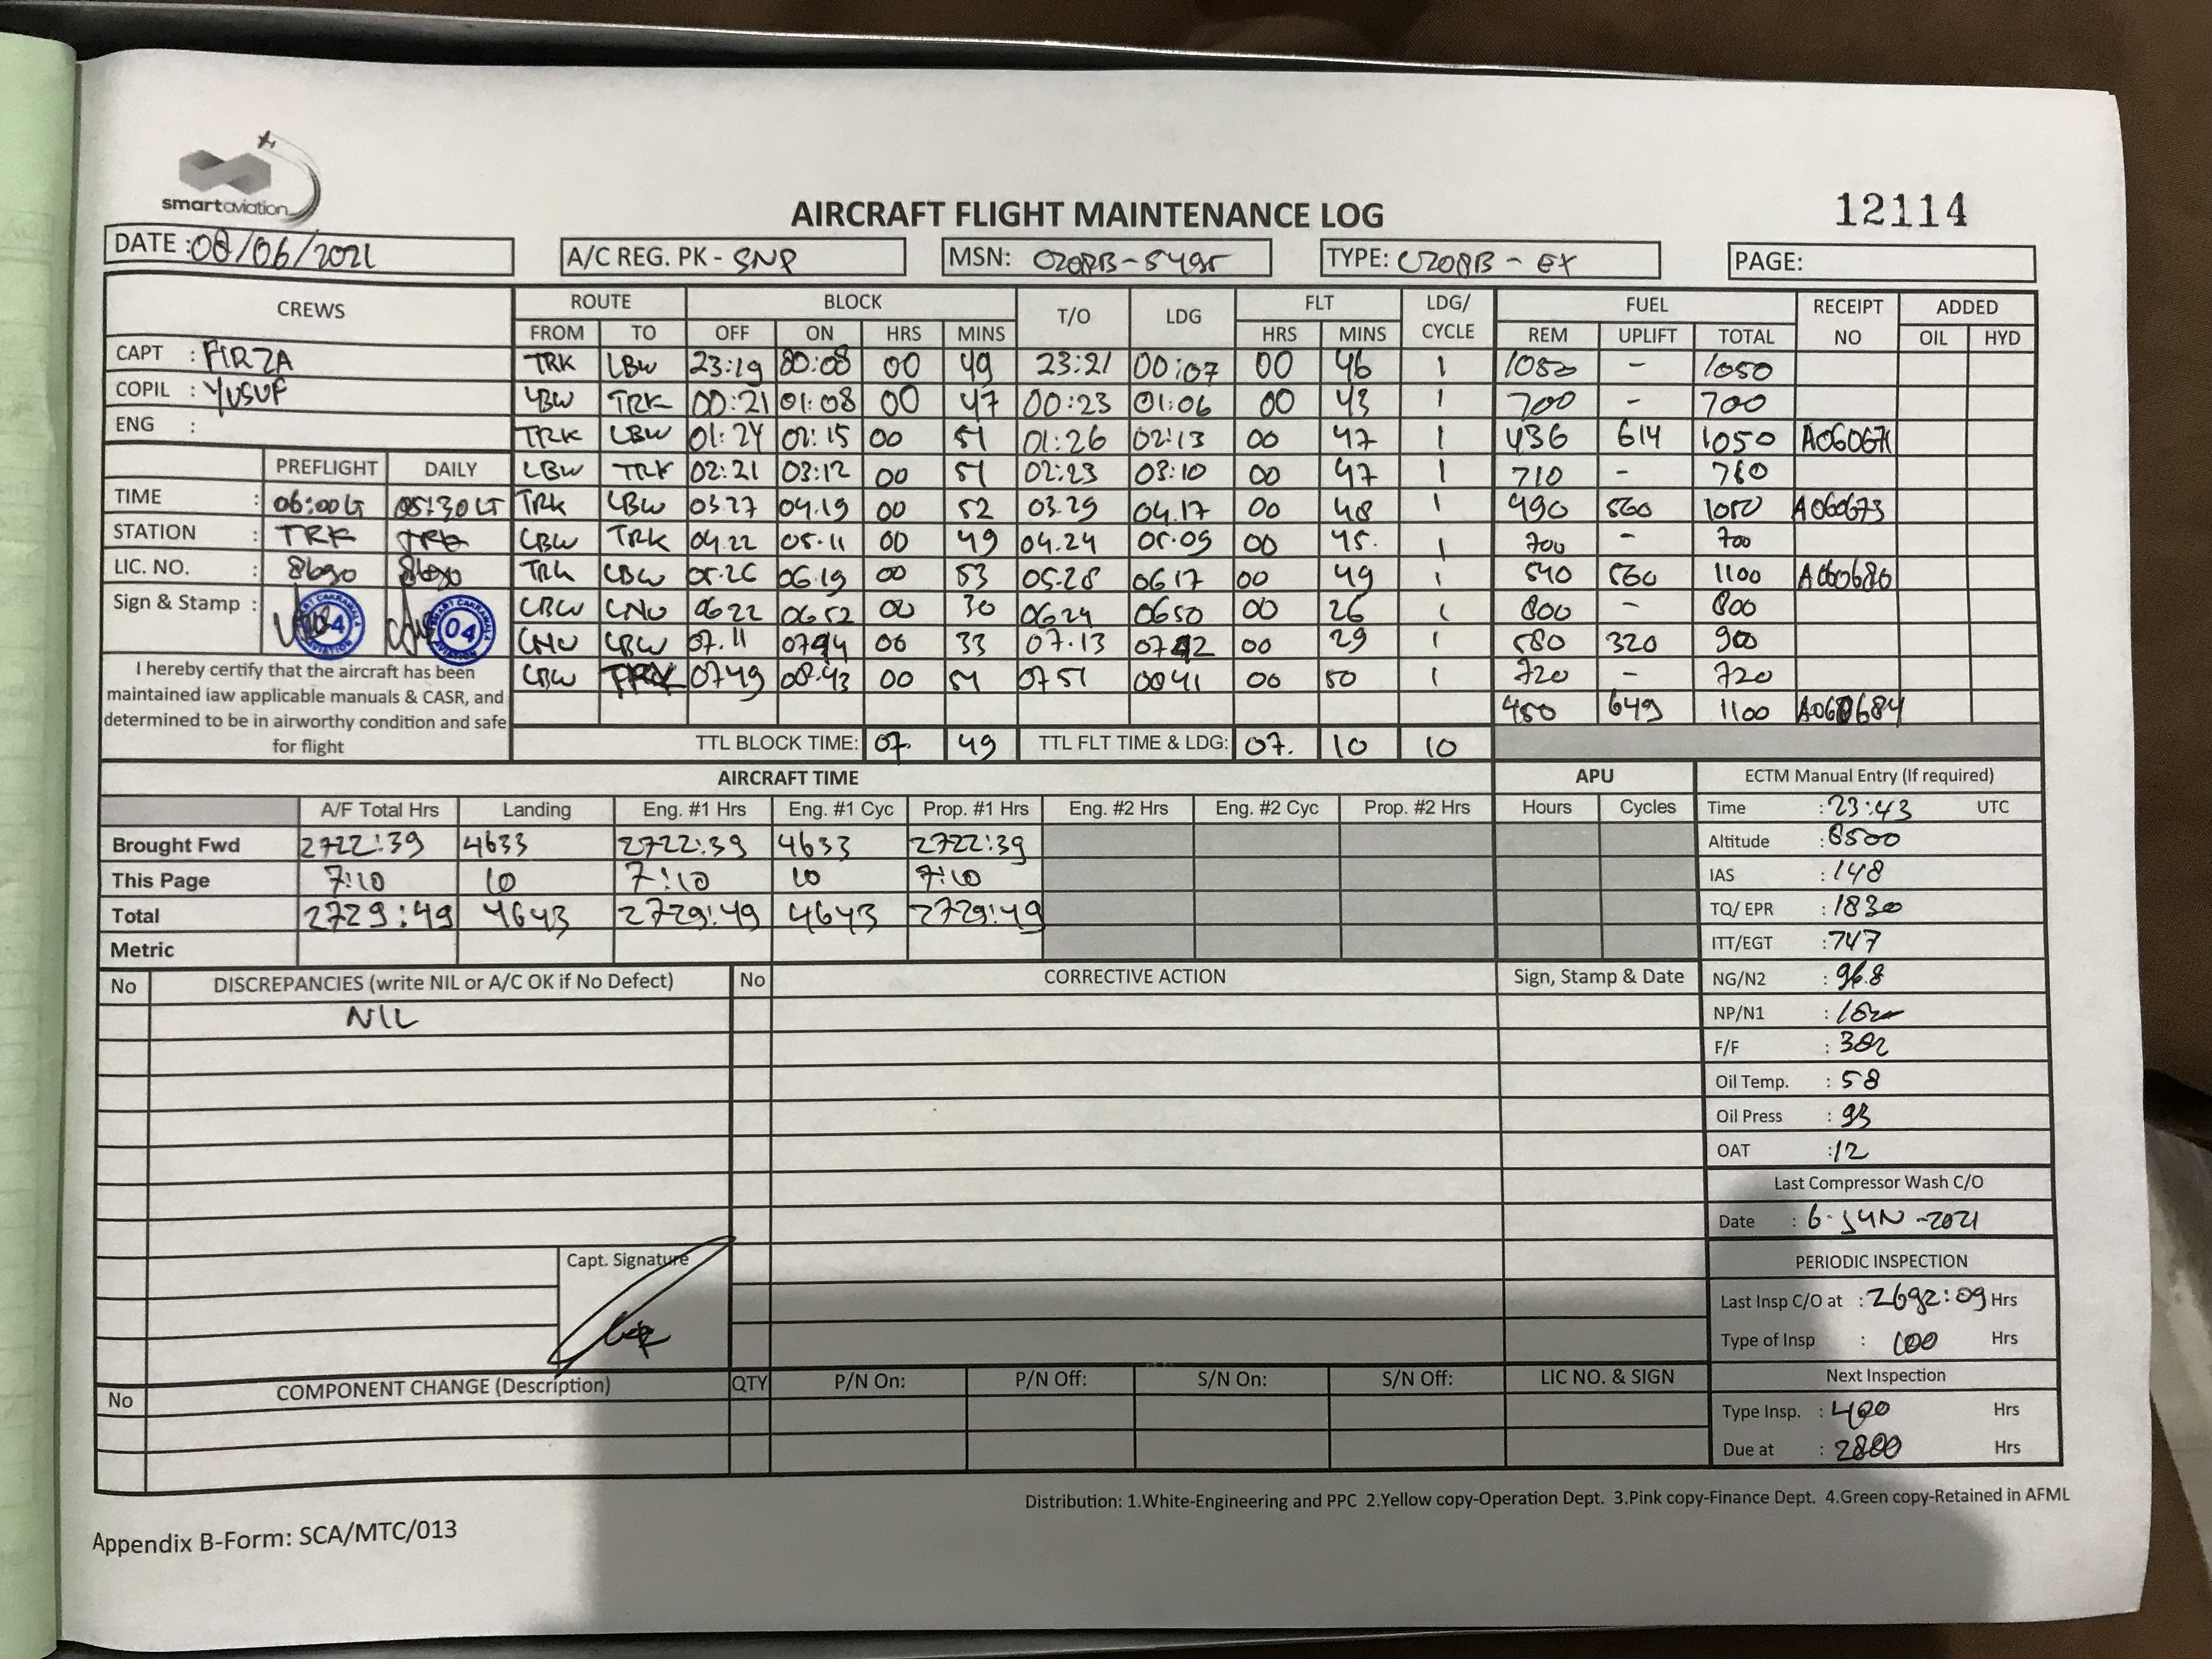 smartaviation
AIRCRAFT FLIGHT MAINTENANCE LOG
12114
DATE : 08/06/2021
A/C REG. PK - SNP
MSN: C208B-5495
TYPE: C208B - EX
PAGE:
CREWS ROUTE BLOCK T/O LDG FLT LDG/ CYCLE FUEL RECEIPT NO ADDED
FROM TO OFF ON HRS MINS HRS MINS REM UPLIFT TOTAL OIL HYD
CAPT : FIRZA
COPIL : YUSUF
ENG :
TRK LBW 23:19 00:08 00 49 23:21 00:07 00 46 1 1050 - 1050
LBW TRK 00:21 01:08 00 47 00:23 01:06 00 43 1 700 - 700
TRK LBW 01:24 02:15 00 51 01:26 02:13 00 47 1 436 614 1050 A060671
LBW TRK 02:21 03:12 00 51 02:23 03:10 00 47 1 710 -
TRK LBW 03.27 04.19 00 52 03.29 04.17 00 48 1 490 560 1050 A060673
LBW TRK 04.22 05.11 00 49 04.24 05.09 00 45. 1 700 - 700
TRK LBW 05.26 06.19 00 53 05.28 06 17 00 49 1 540 560 1100 A060680
LBW LNU 06 22 06 52 00 30 06 24 06 50 00 26 1 800 - 800
LNU LBW 07.11 07 44 00 33 07.13 07 42 00 29 1 580 320 900
LBW TRK 07 49 08.43 00 54 07 51 08 41 00 50 1 720 - 720
450 649 1100 A060684
PREFLIGHT DAILY
TIME : 06:00 LT 05:30 LT
STATION : TRK TRK
LIC. NO. : 8690 8690
Sign & Stamp :
04
I hereby certify that the aircraft has been
maintained iaw applicable manuals & CASR, and
determined to be in airworthy condition and safe
for flight
TTL BLOCK TIME: 07. 49 TTL FLT TIME & LDG: 07. 10 10
AIRCRAFT TIME APU
A/F Total Hrs Landing Eng. #1 Hrs Eng. #1 Cyc Prop. #1 Hrs Eng. #2 Hrs Eng. #2 Cyc Prop. #2 Hrs Hours Cycles
Brought Fwd 2722:39 4633 2722:39 4633 2722:39
This Page 7:10 10 7:10 10 7:10
Total 2729:49 4643 2729:49 4643 2729:49
Metric
ECTM Manual Entry (If required)
Time : 23:43 UTC
Altitude : 8500
IAS : 148
TQ/ EPR : 1830
ITT/EGT : 747
NG/N2 : 96.8
NP/N1 :
F/F : 302
Oil Temp. : 58
Oil Press : 93
OAT : 12
Last Compressor Wash C/O
Date : 6-JUN-2021
PERIODIC INSPECTION
Last Insp C/O at : 2692:09 Hrs
Type of Insp : 100 Hrs
Next Inspection
Type Insp. : 400 Hrs
Due at : 2800 Hrs
No DISCREPANCIES (write NIL or A/C OK if No Defect) No CORRECTIVE ACTION Sign, Stamp & Date
NIL
Capt. Signature
No COMPONENT CHANGE (Description) QTY P/N On: P/N Off: S/N On: S/N Off: LIC NO. & SIGN
Distribution: 1.White-Engineering and PPC 2.Yellow copy-Operation Dept. 3.Pink copy-Finance Dept. 4.Green copy-Retained in AFML
Appendix B-Form: SCA/MTC/013